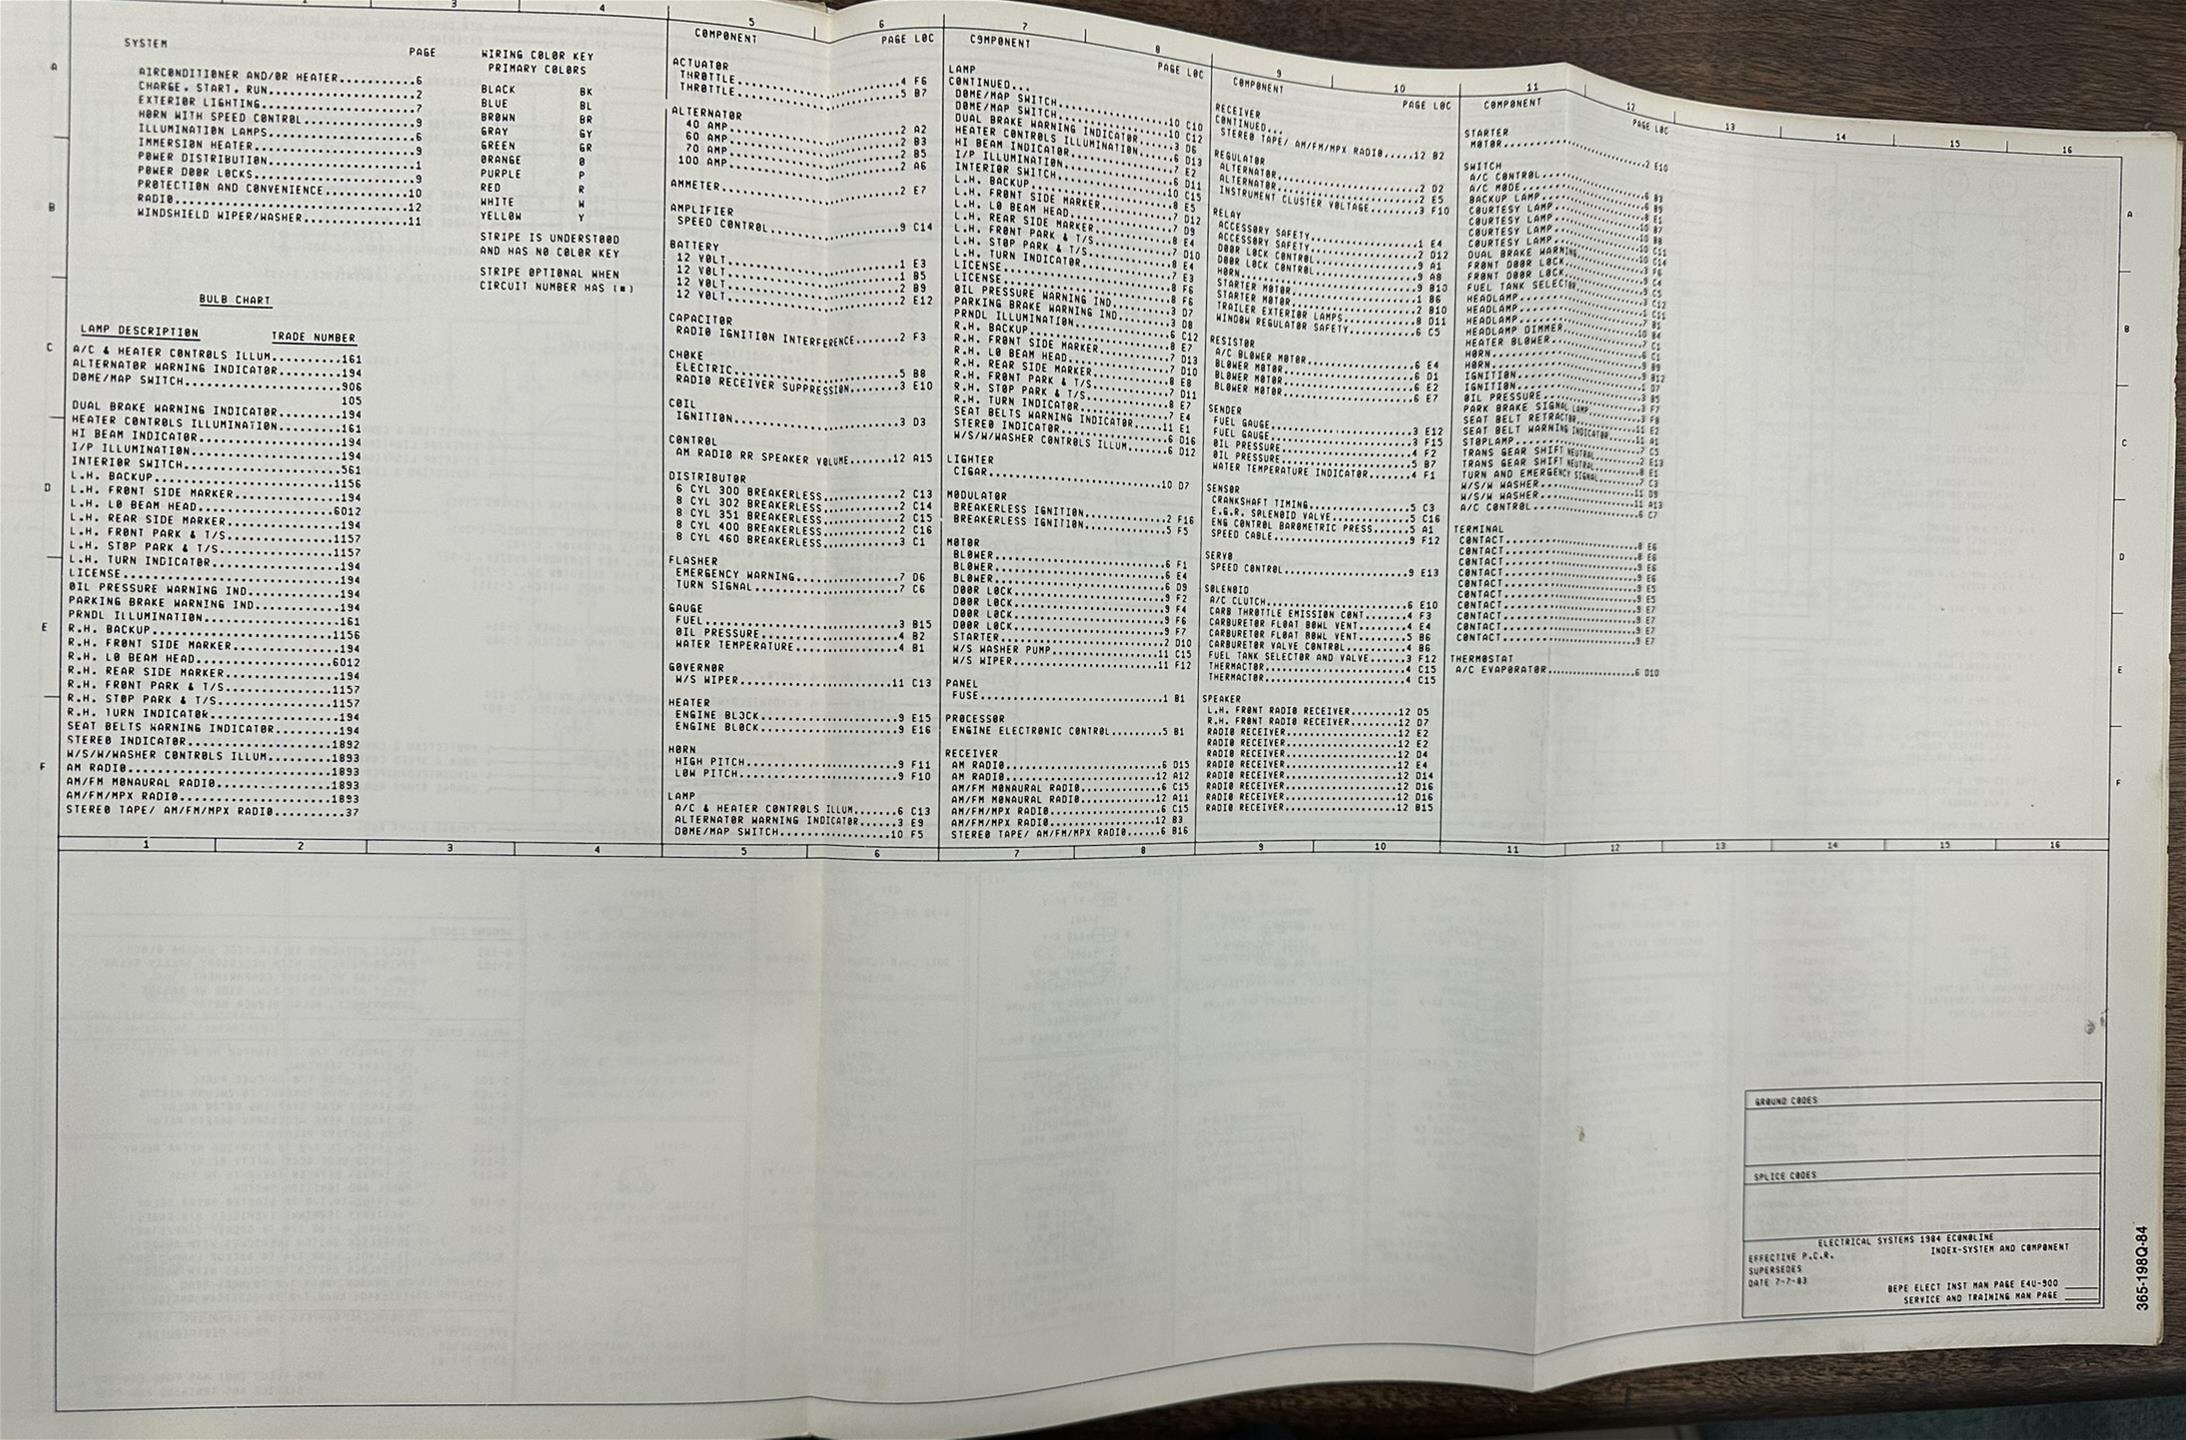 SYSTEM PAGE
AIRCONDITIONER AND/OR HEATER..........6
CHARGE, START, RUN....................2
EXTERIOR LIGHTING.....................7
HORN WITH SPEED CONTROL...............9
ILLUMINATION LAMPS....................6
IMMERSION HEATER......................9
POWER DISTRIBUTION....................1
POWER DOOR LOCKS......................9
PROTECTION AND CONVENIENCE............10
RADIO.................................12
WINDSHIELD WIPER/WASHER...............11
WIRING COLOR KEY
PRIMARY COLORS
BLACK BK
BLUE BL
BROWN BR
GRAY GY
GREEN GR
ORANGE O
PURPLE P
RED R
WHITE W
YELLOW Y
STRIPE IS UNDERSTOOD
AND HAS NO COLOR KEY
STRIPE OPTIONAL WHEN
CIRCUIT NUMBER HAS (*)
BULB CHART
LAMP DESCRIPTION TRADE NUMBER
A/C & HEATER CONTROLS ILLUM..........161
ALTERNATOR WARNING INDICATOR.........194
DOME/MAP SWITCH......................906
105
DUAL BRAKE WARNING INDICATOR.........194
HEATER CONTROLS ILLUMINATION.........161
HI BEAM INDICATOR....................194
I/P ILLUMINATION.....................194
INTERIOR SWITCH......................561
L.H. BACKUP..........................1156
L.H. FRONT SIDE MARKER...............194
L.H. LO BEAM HEAD....................6012
L.H. REAR SIDE MARKER................194
L.H. FRONT PARK & T/S................1157
L.H. STOP PARK & T/S.................1157
L.H. TURN INDICATOR..................194
LICENSE..............................194
OIL PRESSURE WARNING IND.............194
PARKING BRAKE WARNING IND............194
PRNDL ILLUMINATION...................161
R.H. BACKUP..........................1156
R.H. FRONT SIDE MARKER...............194
R.H. LO BEAM HEAD....................6012
R.H. REAR SIDE MARKER................194
R.H. FRONT PARK & T/S................1157
R.H. STOP PARK & T/S.................1157
R.H. TURN INDICATOR..................194
SEAT BELTS WARNING INDICATOR.........194
STEREO INDICATOR.....................1892
W/S/W/WASHER CONTROLS ILLUM..........1893
AM RADIO.............................1893
AM/FM MONAURAL RADIO.................1893
AM/FM/MPX RADIO......................1893
STEREO TAPE/ AM/FM/MPX RADIO.........37
COMPONENT PAGE LOC
ACTUATOR
THROTTLE....................4 F6
THROTTLE....................5 B7
ALTERNATOR
40 AMP......................2 A2
60 AMP......................2 B3
70 AMP......................2 B5
100 AMP.....................2 A6
AMMETER.....................2 E7
AMPLIFIER
SPEED CONTROL...............9 C14
BATTERY
12 VOLT.....................1 E3
12 VOLT.....................1 B5
12 VOLT.....................2 B9
12 VOLT.....................2 E12
CAPACITOR
RADIO IGNITION INTERFERENCE......2 F3
CHOKE
ELECTRIC....................5 B8
RADIO RECEIVER SUPPRESSION.......3 E10
COIL
IGNITION....................3 D3
CONTROL
AM RADIO RR SPEAKER VOLUME.......12 A15
DISTRIBUTOR
6 CYL 300 BREAKERLESS.......2 C13
8 CYL 302 BREAKERLESS.......2 C14
8 CYL 351 BREAKERLESS.......2 C15
8 CYL 400 BREAKERLESS.......2 C16
8 CYL 460 BREAKERLESS.......3 C1
FLASHER
EMERGENCY WARNING...........7 D6
TURN SIGNAL.................7 C6
GAUGE
FUEL........................3 B15
OIL PRESSURE................4 B2
WATER TEMPERATURE...........4 B1
GOVERNOR
W/S WIPER...................11 C13
HEATER
ENGINE BLOCK................9 E15
ENGINE BLOCK................9 E16
HORN
HIGH PITCH..................9 F11
LOW PITCH...................9 F10
LAMP
A/C & HEATER CONTROLS ILLUM......6 C13
ALTERNATOR WARNING INDICATOR.....3 E9
DOME/MAP SWITCH.............10 F5
COMPONENT PAGE LOC
LAMP
CONTINUED...
DOME/MAP SWITCH.............10 C10
DOME/MAP SWITCH.............10 C12
DUAL BRAKE WARNING INDICATOR.....3 D6
HEATER CONTROLS ILLUMINATION.....6 D13
HI BEAM INDICATOR...........7 E2
I/P ILLUMINATION............6 D11
INTERIOR SWITCH.............10 C15
L.H. BACKUP.................8 E5
L.H. FRONT SIDE MARKER......7 D12
L.H. LO BEAM HEAD...........7 D9
L.H. REAR SIDE MARKER.......8 E4
L.H. FRONT PARK & T/S.......7 D10
L.H. STOP PARK & T/S........8 E4
L.H. TURN INDICATOR.........7 E3
LICENSE.....................8 F6
LICENSE.....................8 F6
OIL PRESSURE WARNING IND....3 D7
PARKING BRAKE WARNING IND...3 D8
PRNDL ILLUMINATION..........6 C12
R.H. BACKUP.................8 E7
R.H. FRONT SIDE MARKER......7 D13
R.H. LO BEAM HEAD...........7 D10
R.H. REAR SIDE MARKER.......8 E8
R.H. FRONT PARK & T/S.......7 D11
R.H. STOP PARK & T/S........8 E7
R.H. TURN INDICATOR.........7 E4
SEAT BELTS WARNING INDICATOR.....11 E1
STEREO INDICATOR............6 D16
W/S/W/WASHER CONTROLS ILLUM......6 D12
LIGHTER
CIGAR.......................10 D7
MODULATOR
BREAKERLESS IGNITION........2 F16
BREAKERLESS IGNITION........5 F5
MOTOR
BLOWER......................6 F1
BLOWER......................6 E4
BLOWER......................6 D9
DOOR LOCK...................9 F2
DOOR LOCK...................9 F4
DOOR LOCK...................9 F6
DOOR LOCK...................9 F7
STARTER.....................2 D10
W/S WASHER PUMP.............11 C15
W/S WIPER...................11 F12
PANEL
FUSE........................1 B1
PROCESSOR
ENGINE ELECTRONIC CONTROL........5 B1
RECEIVER
AM RADIO....................6 D15
AM RADIO....................12 A12
AM/FM MONAURAL RADIO........6 C15
AM/FM MONAURAL RADIO........12 A11
AM/FM/MPX RADIO.............6 C15
AM/FM/MPX RADIO.............12 B3
STEREO TAPE/ AM/FM/MPX RADIO.....6 B16
COMPONENT PAGE LOC
RECEIVER
CONTINUED...
STEREO TAPE/ AM/FM/MPX RADIO.....12 B2
REGULATOR
ALTERNATOR..................2 D2
ALTERNATOR..................2 E5
INSTRUMENT CLUSTER VOLTAGE.......3 F10
RELAY
ACCESSORY SAFETY............1 E4
ACCESSORY SAFETY............2 D12
DOOR LOCK CONTROL...........9 A1
DOOR LOCK CONTROL...........9 A8
HORN........................9 B10
STARTER MOTOR...............1 B6
STARTER MOTOR...............2 B10
TRAILER EXTERIOR LAMPS......8 D11
WINDOW REGULATOR SAFETY.....6 C5
RESISTOR
A/C BLOWER MOTOR............6 E4
BLOWER MOTOR................6 D1
BLOWER MOTOR................6 E2
BLOWER MOTOR................6 E7
SENDER
FUEL GAUGE..................3 E12
FUEL GAUGE..................3 F15
OIL PRESSURE................4 F2
OIL PRESSURE................5 B7
WATER TEMPERATURE INDICATOR......4 F1
SENSOR
CRANKSHAFT TIMING...........5 C3
E.G.R. SOLENOID VALVE.......5 C16
ENG CONTROL BAROMETRIC PRESS.....5 A1
SPEED CABLE.................9 F12
SERVO
SPEED CONTROL...............9 E13
SOLENOID
A/C CLUTCH..................6 E10
CARB THROTTLE EMISSION CONT......4 F3
CARBURETOR FLOAT BOWL VENT.......4 E4
CARBURETOR FLOAT BOWL VENT.......5 B6
CARBURETOR VALVE CONTROL.........4 B6
FUEL TANK SELECTOR AND VALVE.....3 F12
THERMACTOR..................4 C15
THERMACTOR..................4 C15
SPEAKER
L.H. FRONT RADIO RECEIVER........12 D5
R.H. FRONT RADIO RECEIVER........12 D7
RADIO RECEIVER..............12 E2
RADIO RECEIVER..............12 E2
RADIO RECEIVER..............12 D4
RADIO RECEIVER..............12 E4
RADIO RECEIVER..............12 D14
RADIO RECEIVER..............12 D16
RADIO RECEIVER..............12 D16
RADIO RECEIVER..............12 B15
COMPONENT PAGE LOC
STARTER
MOTOR.......................2 E10
SWITCH
A/C CONTROL
A/C MODE
BACKUP LAMP
COURTESY LAMP
COURTESY LAMP
COURTESY LAMP
COURTESY LAMP
DUAL BRAKE WARNING
FRONT DOOR LOCK
FRONT DOOR LOCK
FUEL TANK SELECTOR
HEADLAMP
HEADLAMP
HEADLAMP
HEADLAMP DIMMER
HEATER BLOWER
HORN
HORN
IGNITION
IGNITION
OIL PRESSURE
PARK BRAKE SIGNAL LAMP
SEAT BELT RETRACTOR
SEAT BELT WARNING INDICATOR
STOPLAMP
TRANS GEAR SHIFT NEUTRAL
TRANS GEAR SHIFT NEUTRAL
TURN AND EMERGENCY SIGNAL
W/S/W WASHER
W/S/W WASHER
A/C CONTROL.................6 C7
TERMINAL
CONTACT.....................8 E6
CONTACT.....................8 E6
CONTACT.....................9 E6
CONTACT.....................9 E6
CONTACT.....................9 E5
CONTACT.....................9 E5
CONTACT.....................9 E7
CONTACT.....................9 E7
CONTACT.....................9 E7
CONTACT.....................9 E7
THERMOSTAT
A/C EVAPORATOR..............6 D10
1 2 3 4 5 6 7 8 9 10 11 12 13 14 15 16
GROUND CODES
SPLICE CODES
ELECTRICAL SYSTEMS 1984 ECONOLINE
EFFECTIVE P.C.R. INDEX-SYSTEM AND COMPONENT
SUPERSEDES
DATE 7-7-83
BEPE ELECT INST MAN PAGE E4U-900
SERVICE AND TRAINING MAN PAGE
365-198Q-84